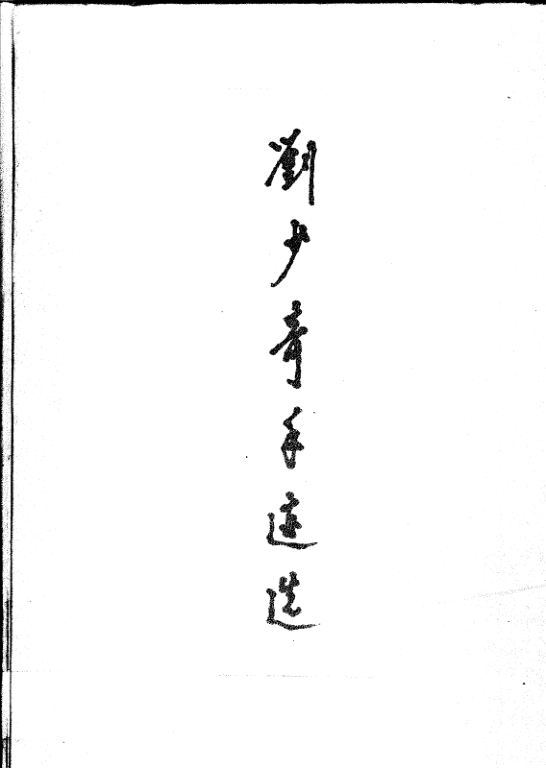 劉少奇手迹选